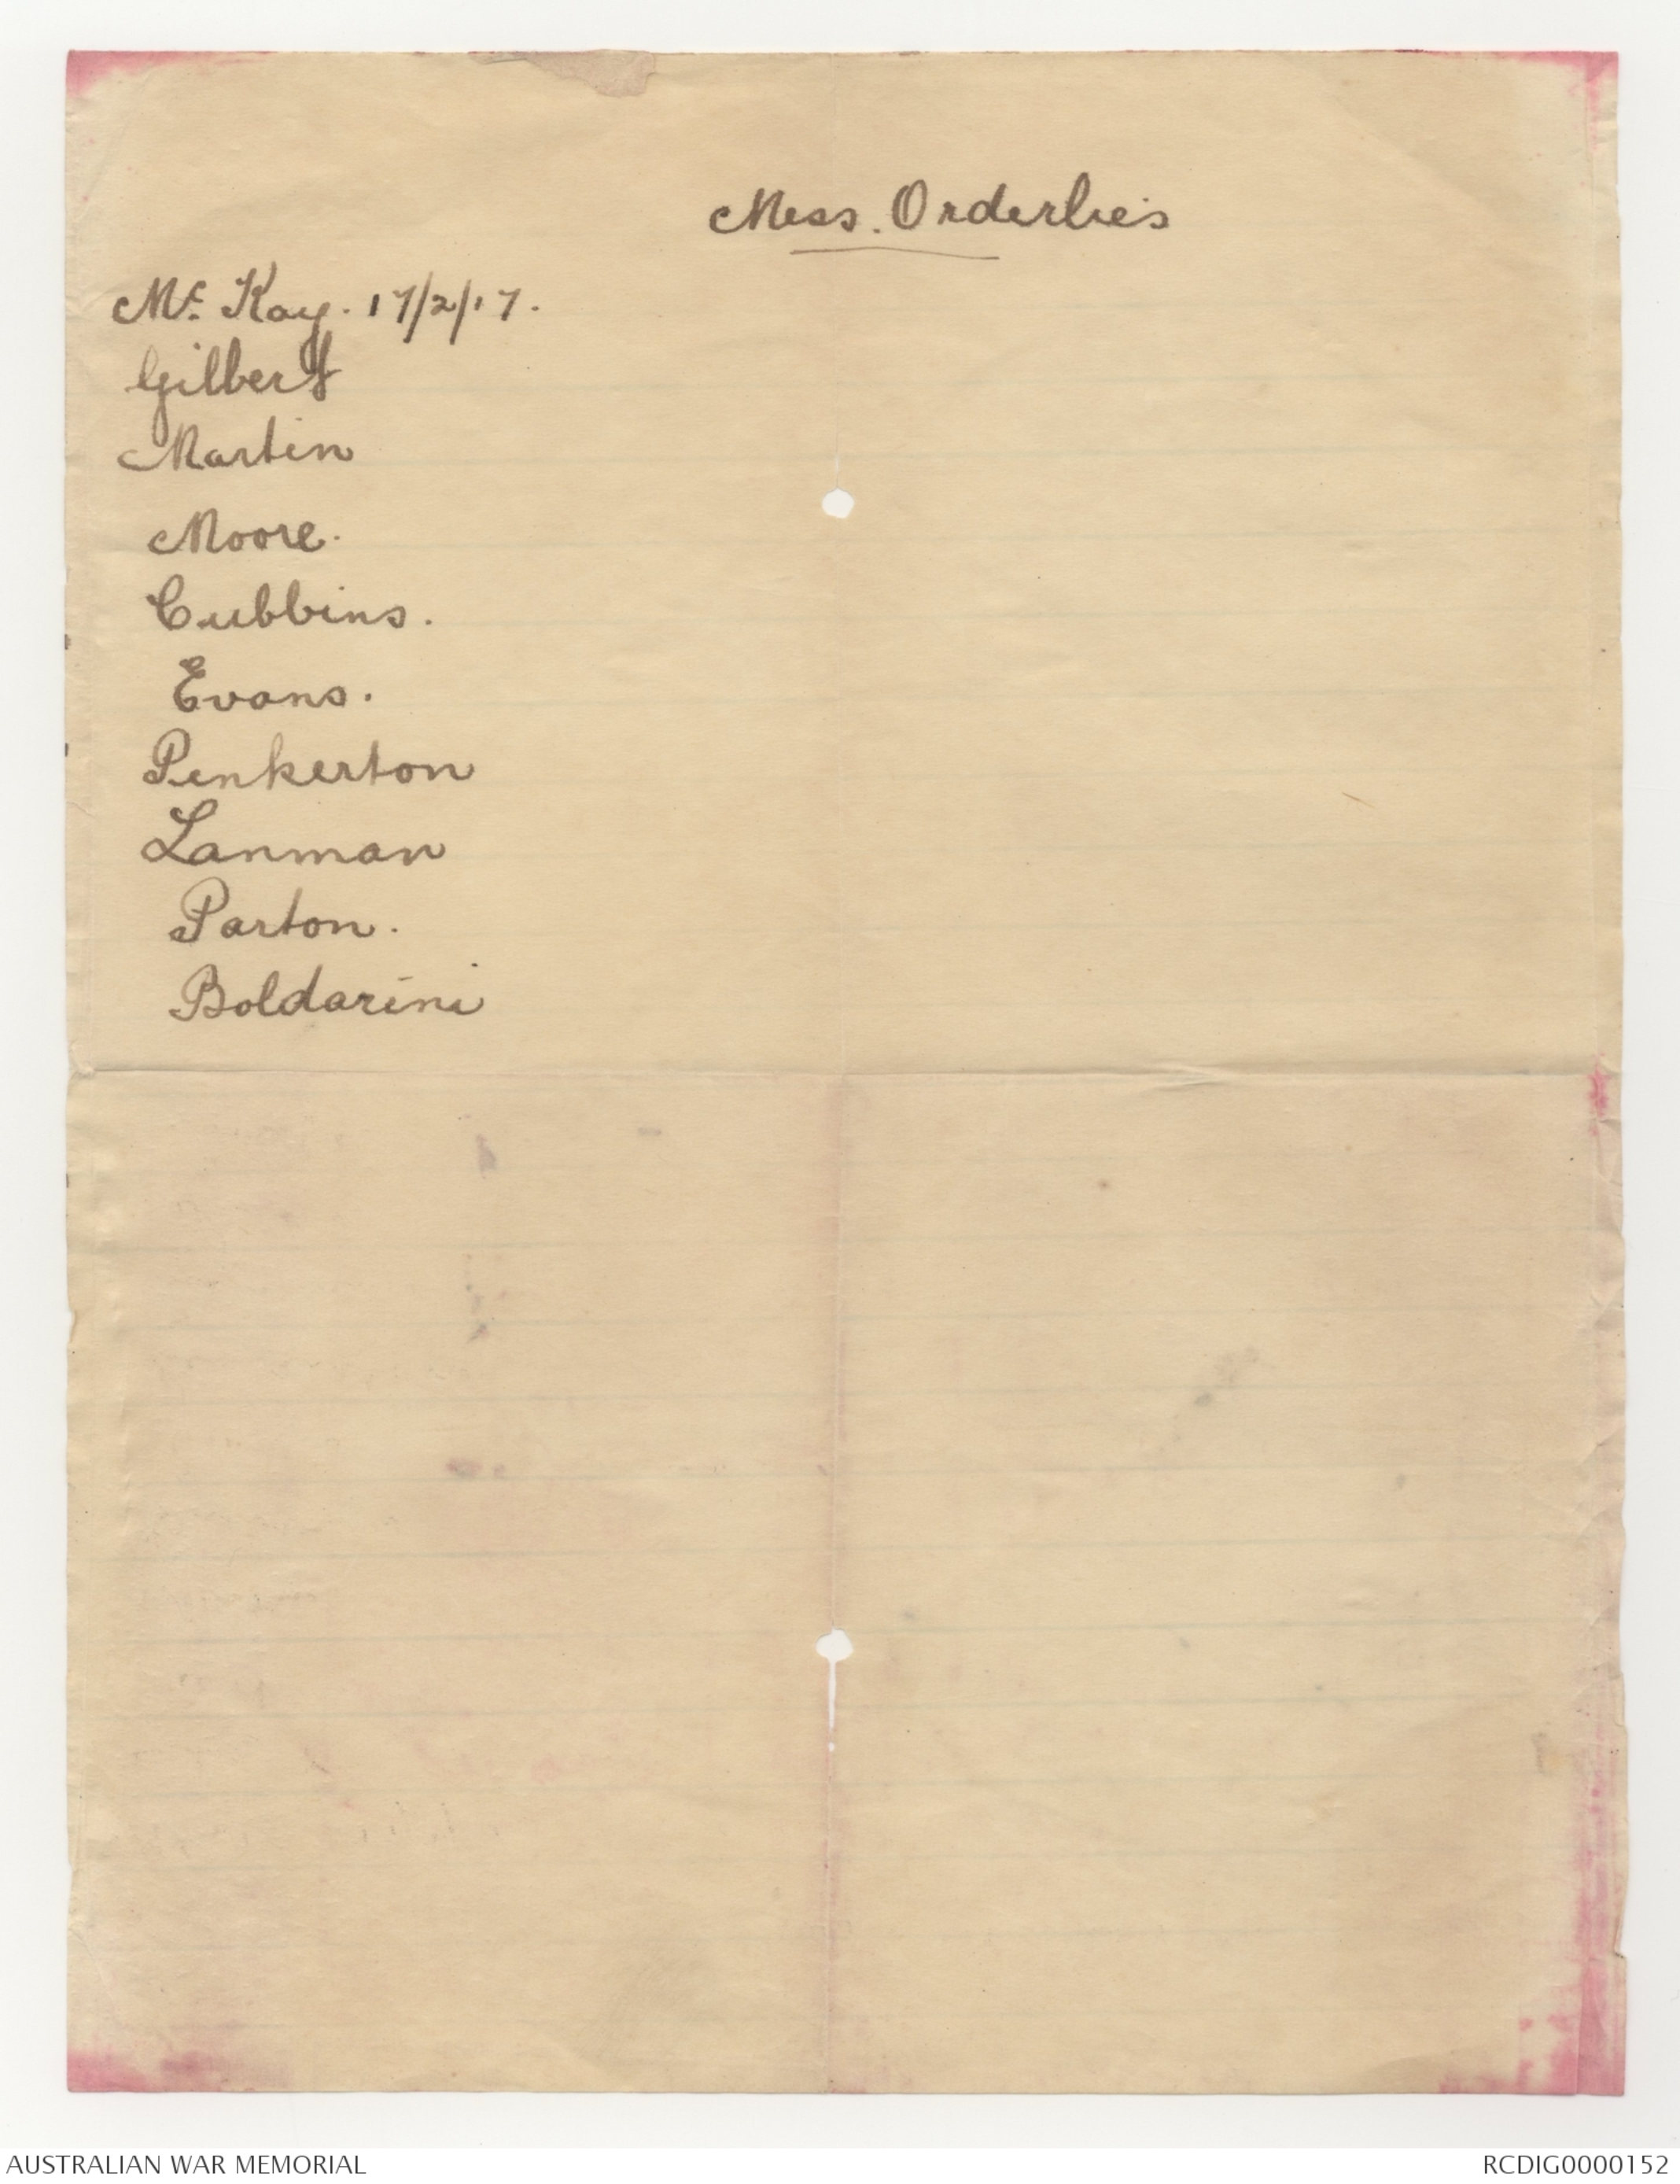 Mess. Orderlies
Mc Kay. 17/2/17.
Gilbert
Martin
Moore.
Cubbins.
Evans.
Penkerton
Lanman
Parton.
Boldarini
AUSTRALIAN WAR MEMORIAL
RCDIG0000152